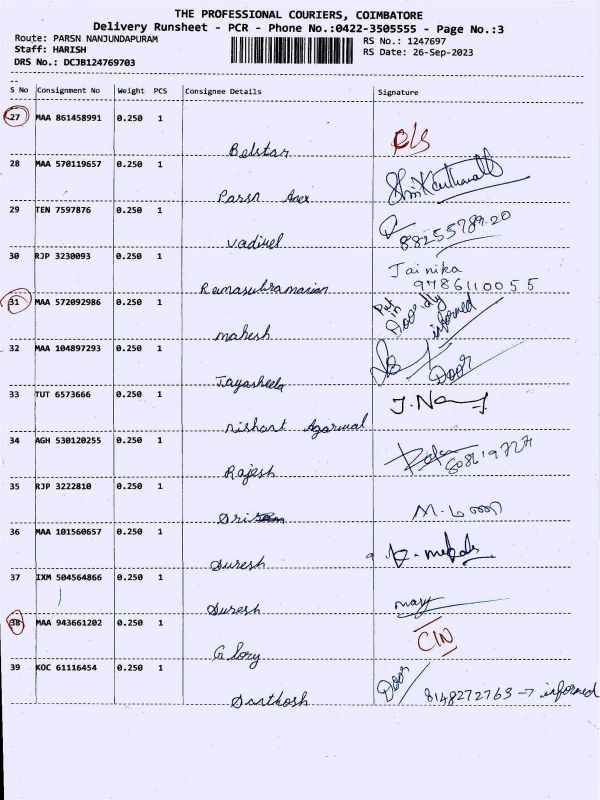 THE PROFESSIONAL COURIERS, COIMBATORE
Delivery Runsheet - PCR - Phone No.:0422-3505555 - Page No.:3
Route: PARSN NANJUNDAPURAM
Staff: HARISH
DRS No.: DCJB124769703
RS No.: 1247697
RS Date: 26-Sep-2023
S No Consignment No Weight PCS Consignee Details Signature
27 MAA 861458991 0.250 1
Belstar
28 MAA 570119657 0.250 1
Parsn Anex
29 TEN 7597876 0.250 1
Vadivel
30 RJP 3230093 0.250 1 Jainika
Ramasubramanian 9786110055
31 MAA 572092986 0.250 1 Put in Door dly informed
mahesh
32 MAA 104897293 0.250 1 Door
Jayasheela
33 TUT 6573666 0.250 1
nishant Agarwal
34 AGH 530120255 0.250 1
Rajesh
35 RJP 3222810 0.250 1
36 MAA 101560657 0.250 1
Suresh
37 IXM 504564866 0.250 1 mary
Suresh
38 MAA 943661202 0.250 1 CIN
Glory
39 KOC 61116454 0.250 1 Door
Santhosh 8148272763 → informed